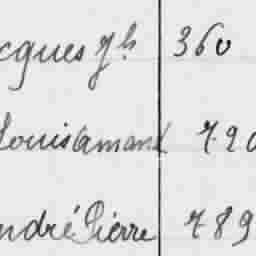 cques Jh 360
Louis amand 720
ndré Pierre 789